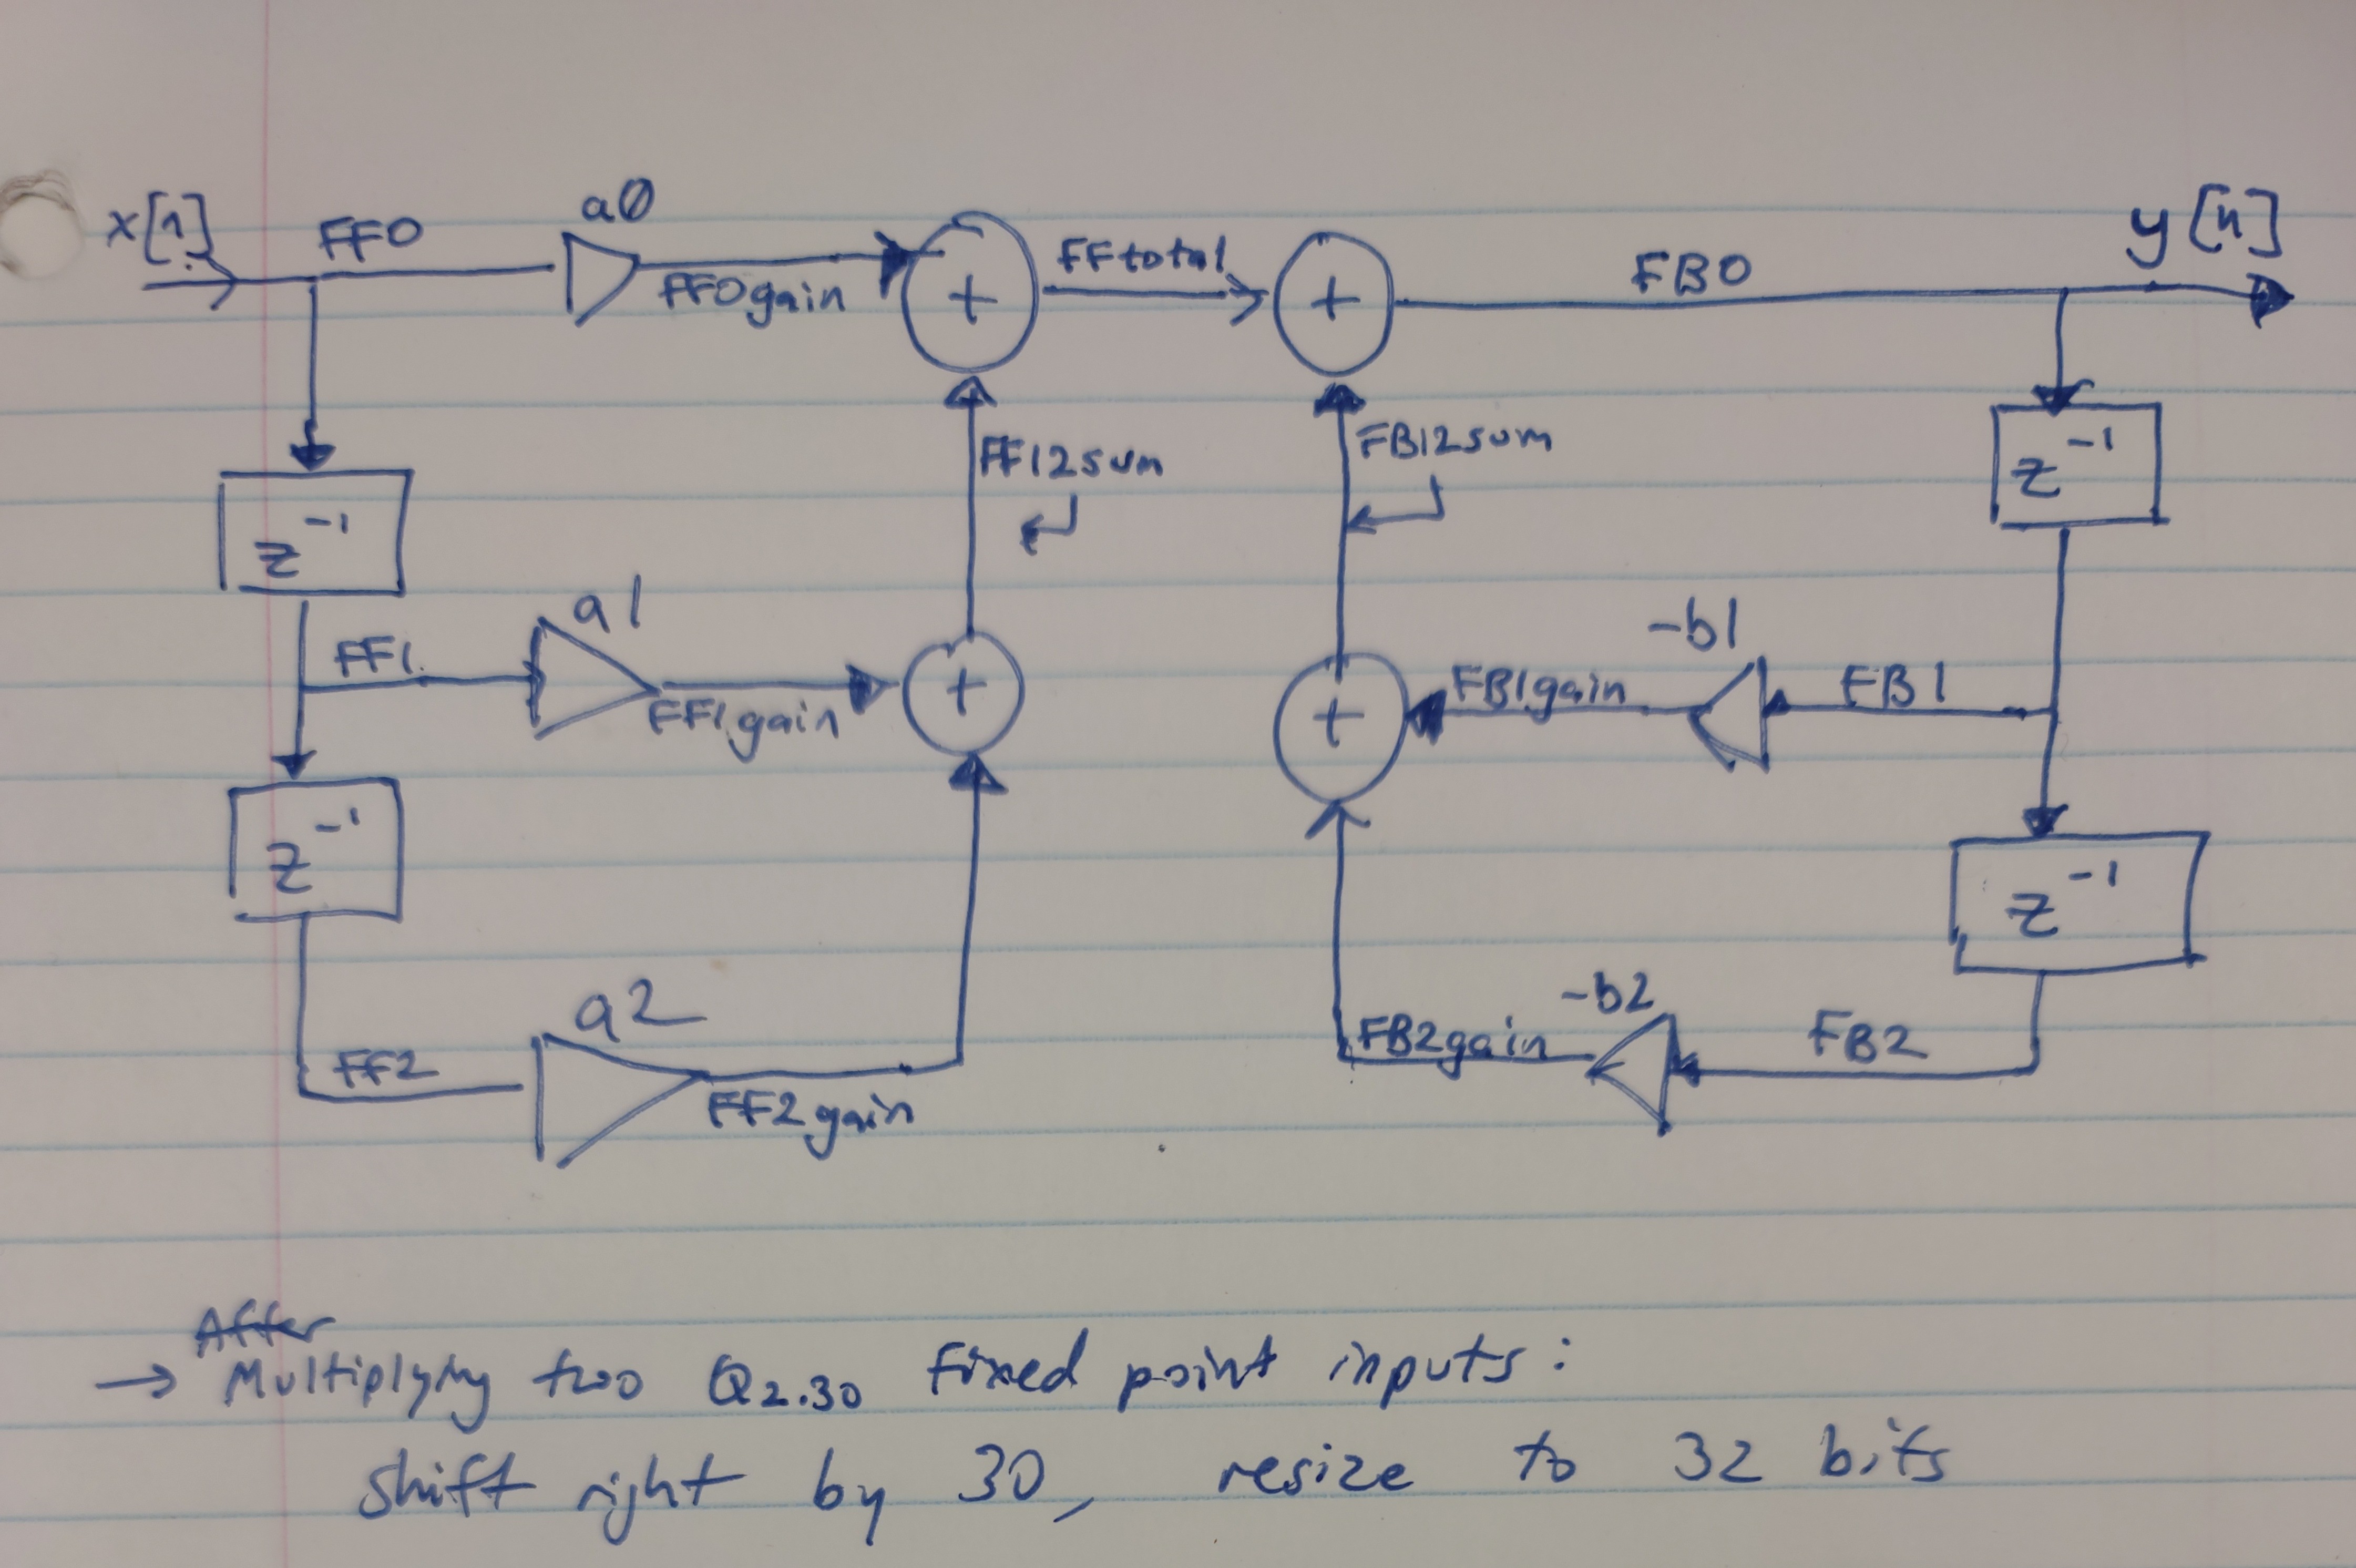 x[n]
FF0
a0
FF0gain
FFtotal
FB0
y[n]
FF12sum
FB12sum
z⁻¹
z⁻¹
FF1
a1
FF1gain
FB1gain
-b1
FB1
z⁻¹
z⁻¹
FF2
a2
FF2gain
FB2gain
-b2
FB2
+
+
+
+
After
→ Multiplying two Q2.30 fixed point inputs:
shift right by 30, resize to 32 bits